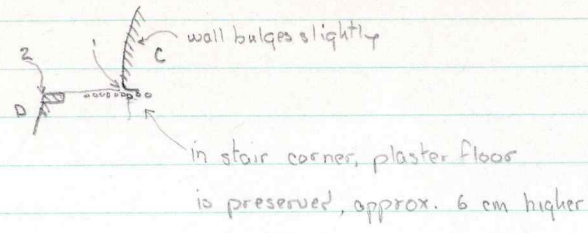 wall bulges slightly
C
1
2
D
in stair corner, plaster floor
is preserved, approx. 6 cm higher